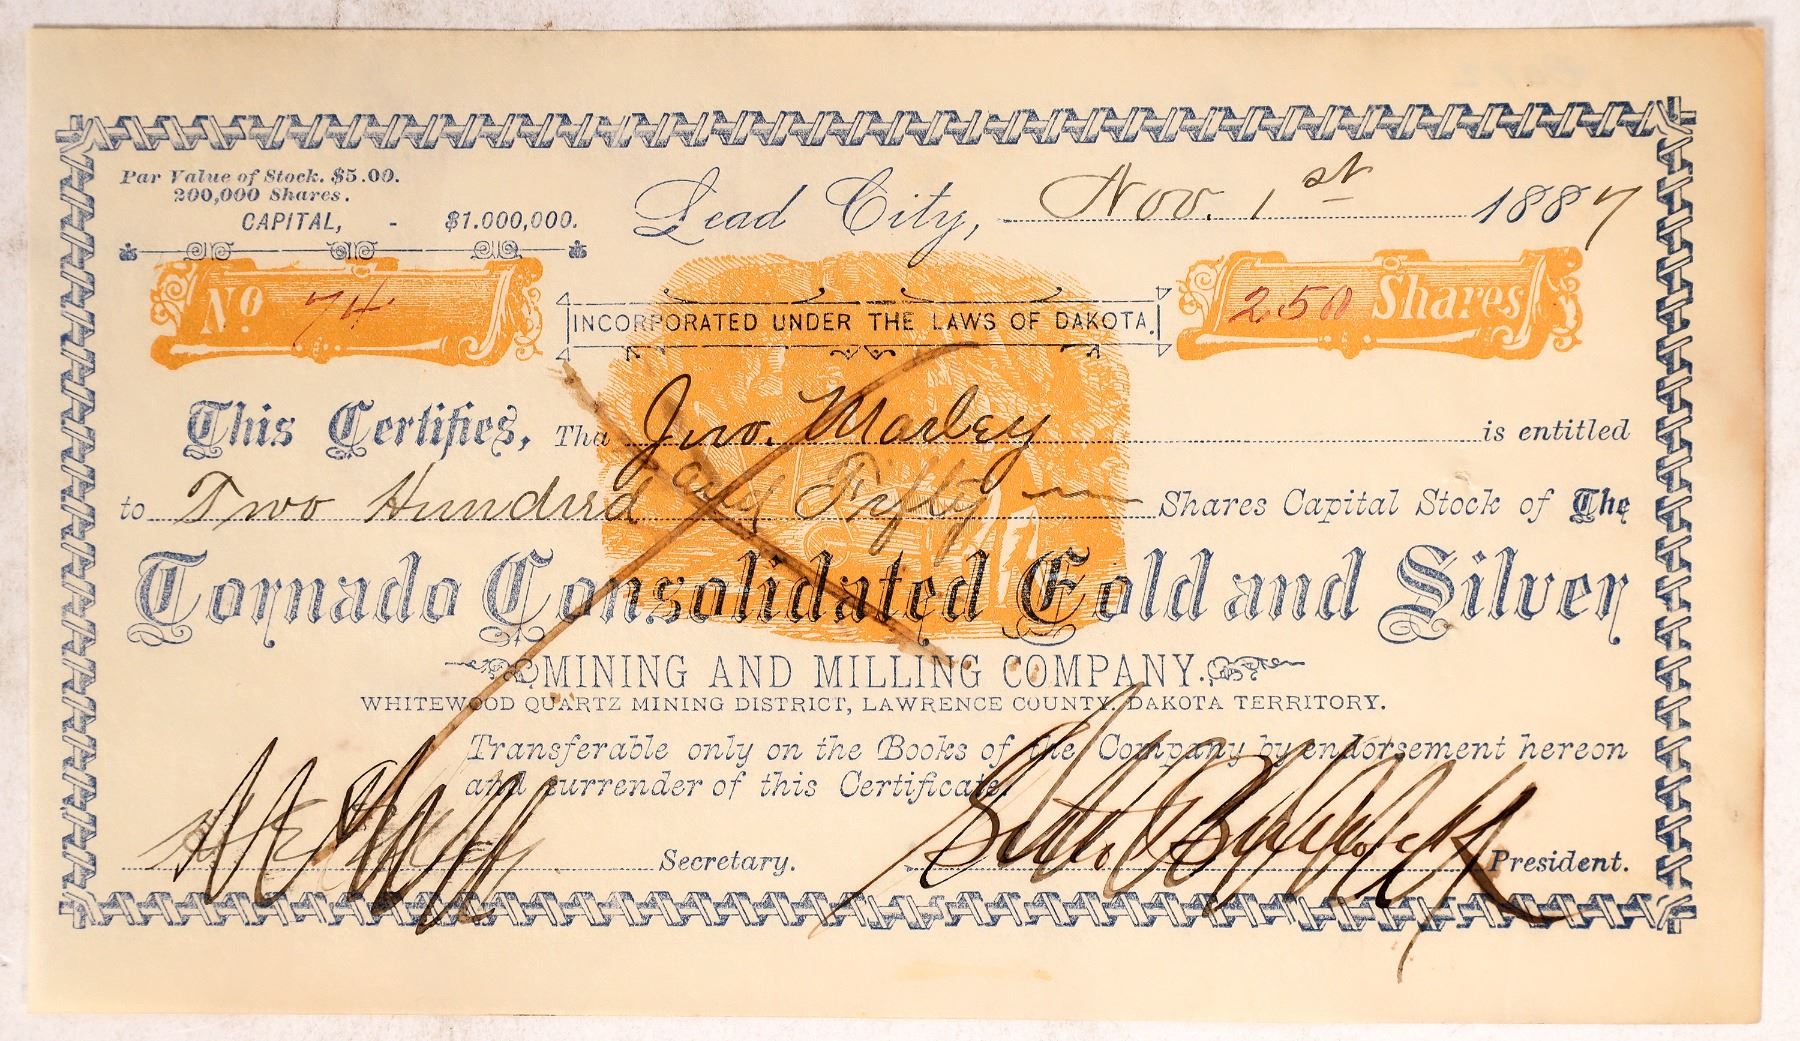 Par Value of Stock. $5.00.
200,000 Shares.
CAPITAL, - $1.000,000.
Lead City, Nov. 1st 1887
No 74
INCORPORATED UNDER THE LAWS OF DAKOTA.
250 Shares
This Certifies, Tha Jno. Marley is entitled
to Two Hundred and Fifty Shares Capital Stock of The
Tornado Consolidated Gold and Silver
MINING AND MILLING COMPANY.
WHITEWOOD QUARTZ MINING DISTRICT, LAWRENCE COUNTY, DAKOTA TERRITORY.
Transferable only on the Books of the Company by endorsement hereon
and surrender of this Certificate.
Secretary. Seth Bullock President.